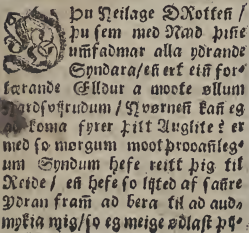 ÞU Heilage DRotten /
þu sem med Naad þiñe
umfadmar alla ydrande
Syndara/ eñ ert eiñ for-
tærande Elldur a moote øllum
Hardsvijrudum / Hvørnen kañ eg
ad koma fyrer þitt Auglite? er
med so mørgum moot prooanleg-
um Syndum hefe reitt þig til
Reide / eñ hefe so lijted af sañre
Ydran framm ad bera til ad aud-
mykia mig/ so eg meige ødlast þij-